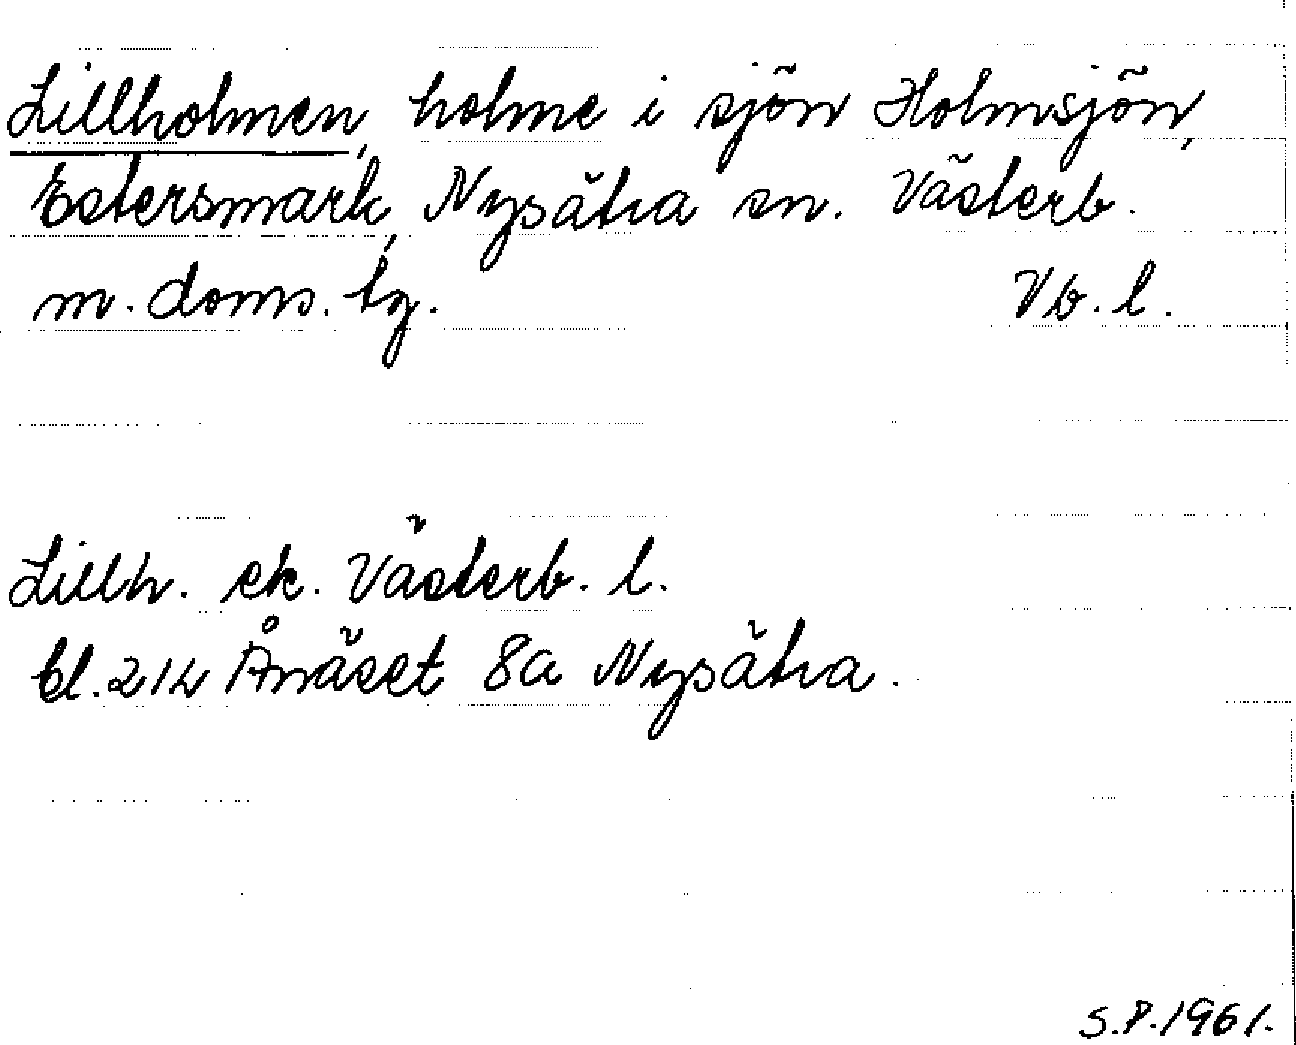 Lillholmen, holme i sjön Holmsjön,
Estersmark, Nysätra sn. Västerb.
m. doms. tg. Vb. l.
Lillh. ek. Västerb. l.
bl. 214 Ånäset 8a Nysätra.
S.P. 1961.